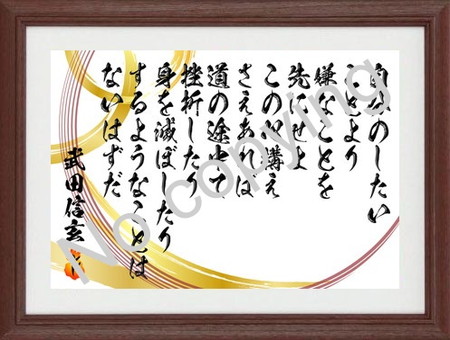 自分のしたい
ことより
嫌なことを
先にせよ
この心構え
さえあれば
道の途中で
挫折したり
身を滅ぼしたり
するようなことは
ないはずだ
武田信玄
No copying